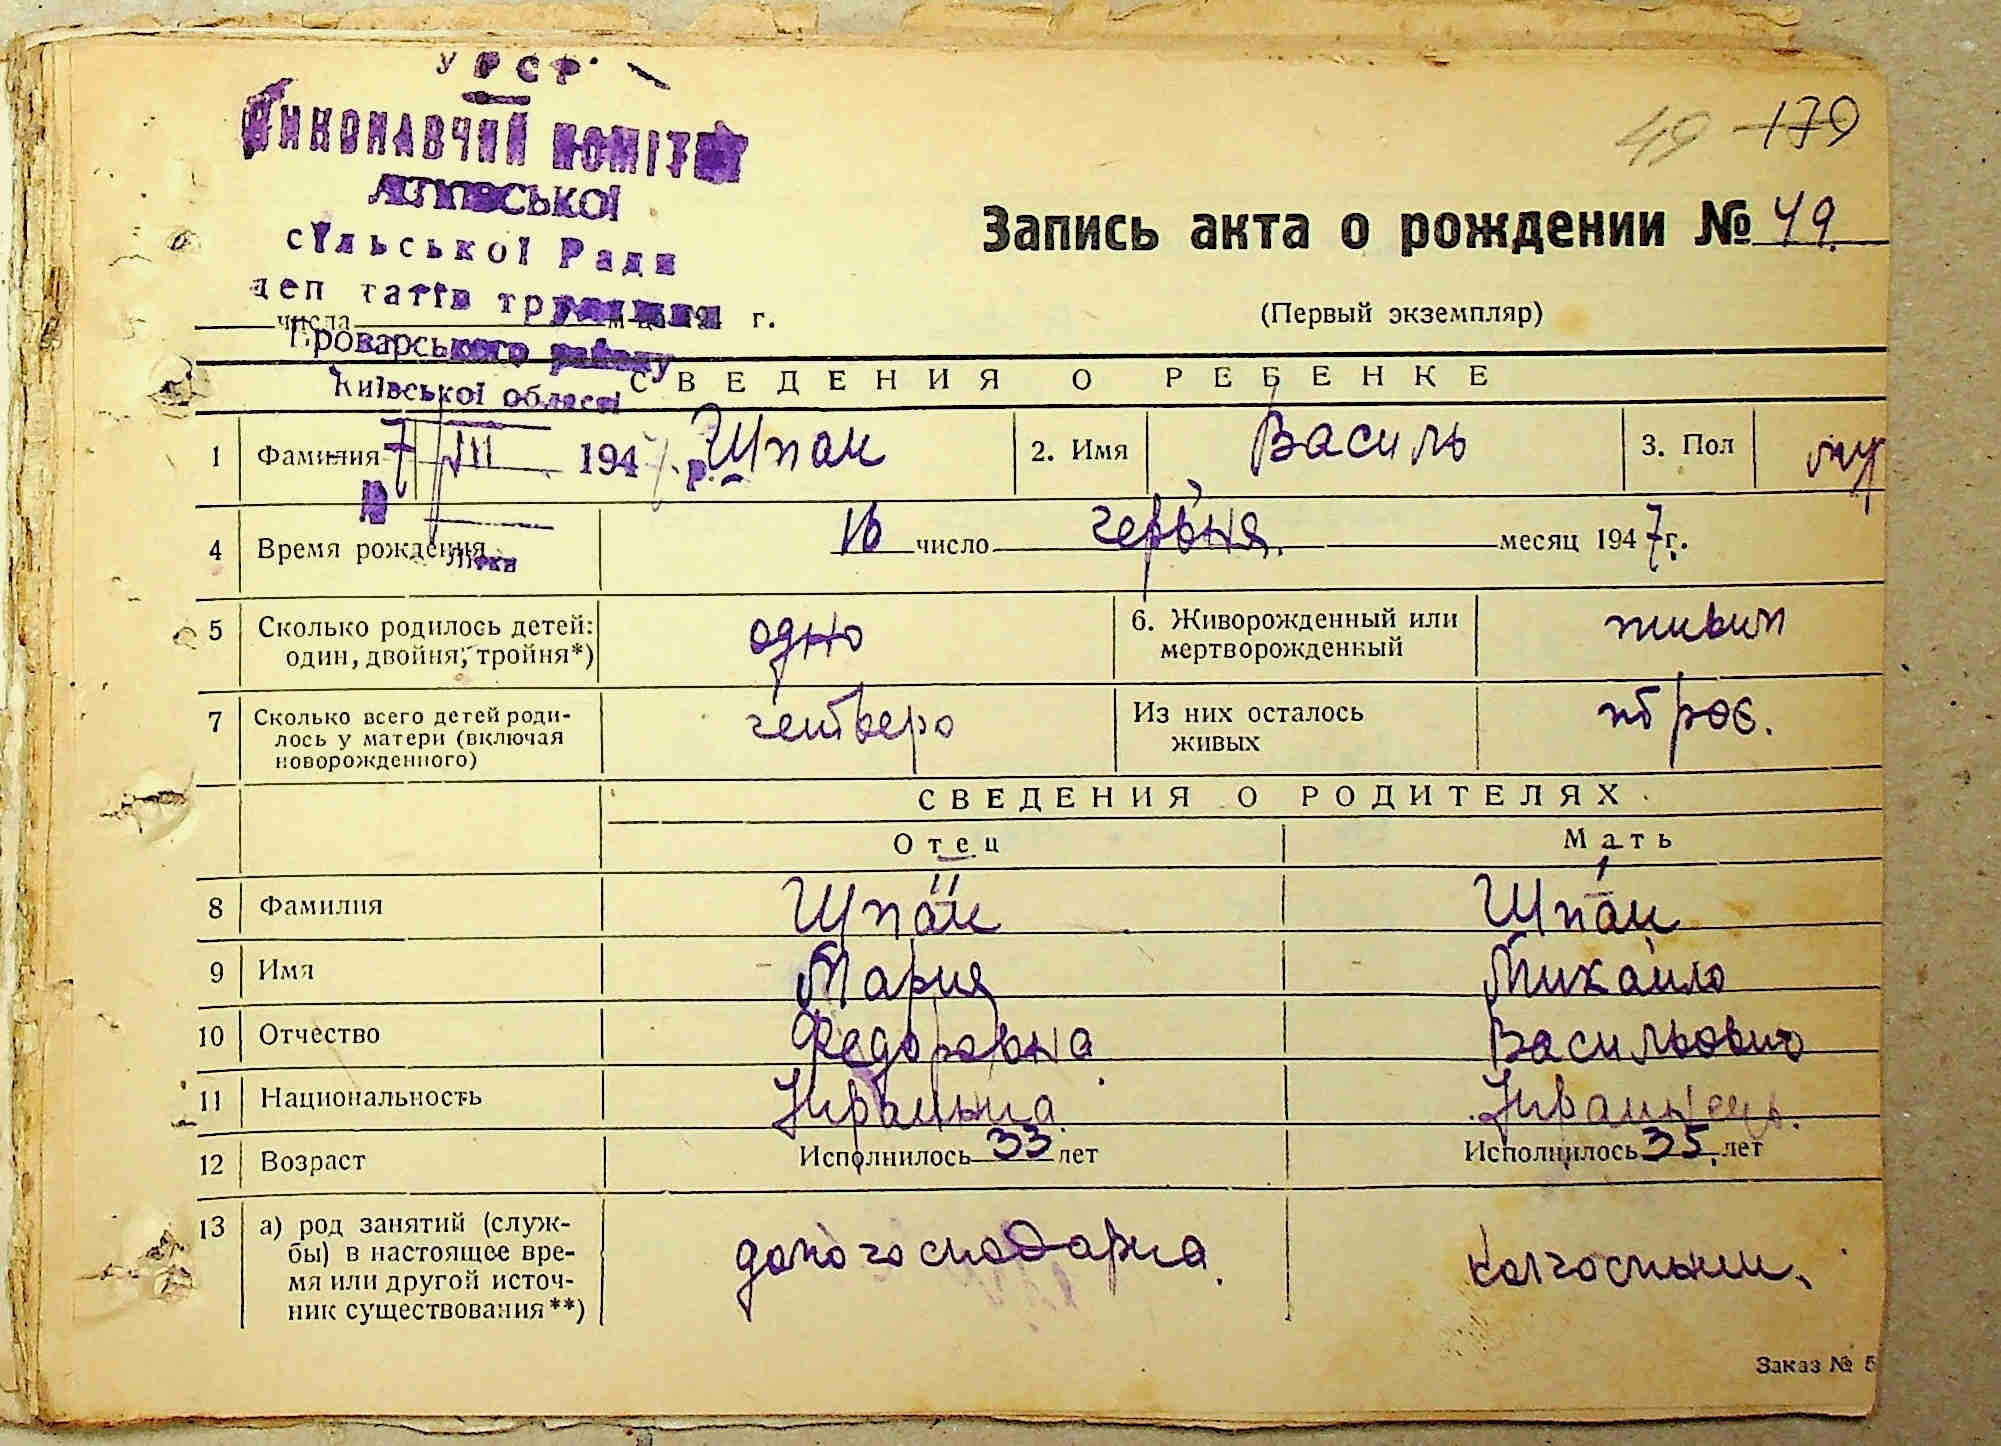 УРСР
ВИКОНАВЧИЙ КОМІТЕТ
сільської Ради
49 179
Запись акта о рождении № 49.
(Первый экземпляр)
числа г.
Броварського району
Київської області
СВЕДЕНИЯ О РЕБЕНКЕ
1 Фамилия Шпак 2. Имя Василь 3. Пол
7 VII 1947 р.
4 Время рождения 16 число червня. месяц 1947 г.
Літки
5 Сколько родилось детей: один, двойня, тройня*) одно 6. Живорожденный или мертворожденный живим
7 Сколько всего детей родилось у матери (включая новорожденного) четверо Из них осталось живых троє.
СВЕДЕНИЯ О РОДИТЕЛЯХ
Отец Мать
8 Фамилия Шпак Шпак
9 Имя Мария Михайло
10 Отчество Федоровна Васильович
11 Национальность Украінка. Украінець.
12 Возраст Исполнилось 33 лет Исполнилось 35 лет
13 а) род занятий (службы) в настоящее время или другой источник существования**) домогосподарка. колгоспник.
Заказ № 5